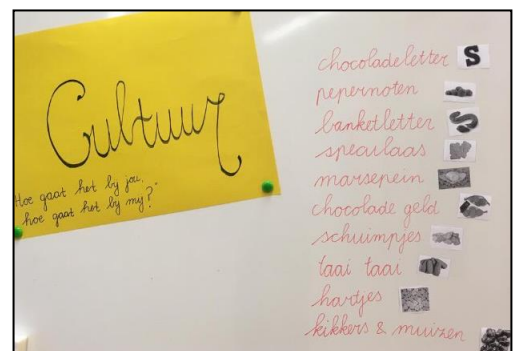 Cultuur
Hoe gaat het bij jou,
hoe gaat het bij mij?"
chocoladeletter S
pepernoten
banketletter
speculaas
marsepein
chocolade geld
schuimpjes
taai taai
hartjes
kikkers & muizen